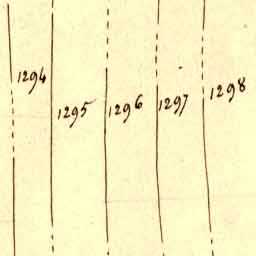 1294
1295
1296
1297
1298